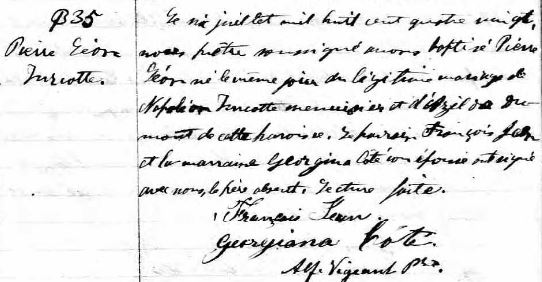 B35
Pierre Léon
Turcotte.
Le six juillet mil huit cent quatre vingt,
nous prêtre soussigné avons baptisé Pierre
Léon né le même jour du légitime mariage de
Napoléon Turcotte menuisier et d'Exilda Du
mont de cette paroisse. Le parrain François Jean
et la marraine Georgina Côté son épouse ont signé
avec nous, le père absent. Lecture faite.
François Jean.
Georgiana Côté.
Alf. Vigeant Ptre.